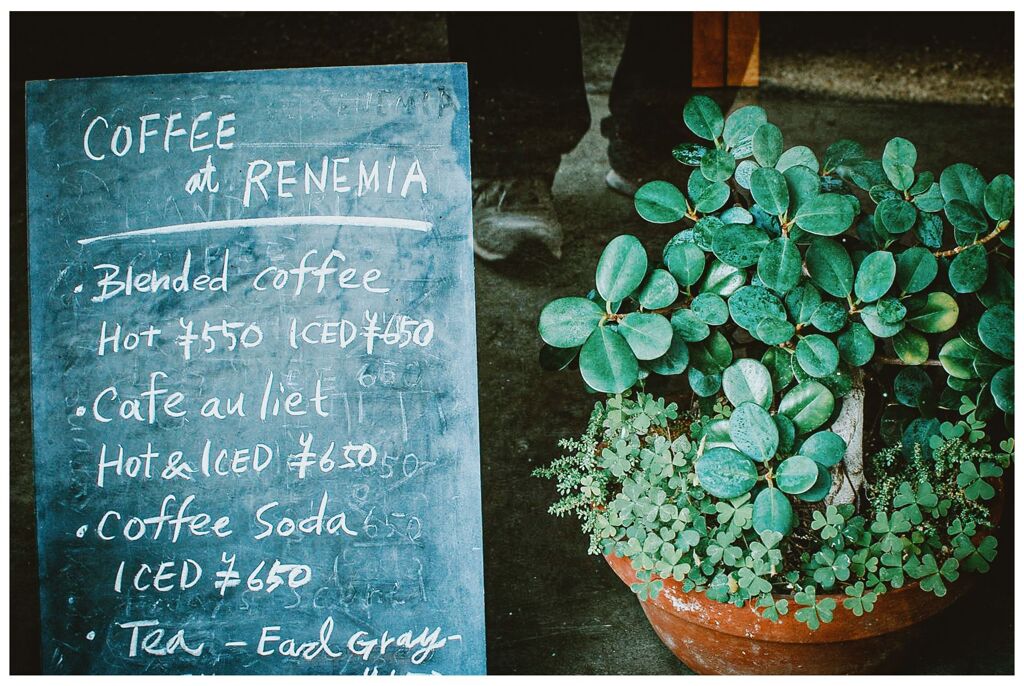 COFFEE
at RENEMIA
· Blended coffee
Hot ¥550 ICED ¥650
· Cafe au liet
Hot & ICED ¥650
· Coffee Soda
ICED ¥650
· Tea - Earl Gray-